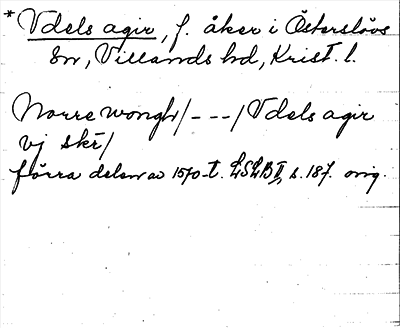 * Vdels agir, f. åker i Österslövs
sn, Villands hd, Krist. l.
Norre wongh/ - - - / Vdels agir
vj skr/
förra delen av 1570-t. LSLB II, s. 187. orig.